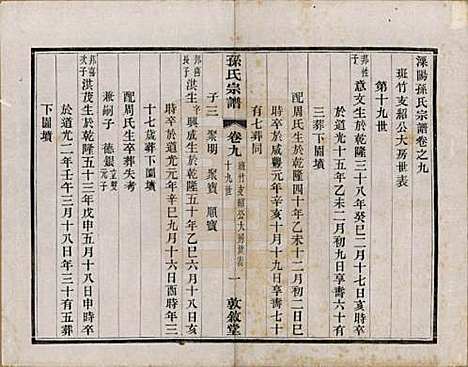 溧陽孫氏宗譜卷之九
斑竹支紹公大房世表
第十九世
邦性
意文生於乾隆三十八年癸巳二月十七日亥時卒
於道光十五年乙未二月初九日享壽六十有
三葬下圖墳
配周氏生於乾隆四十年乙未十二月初二日巳
時卒於咸豐元年辛亥十月十九日享壽七十
有七葬同
孫氏宗譜
卷九
斑竹支紹公大房世表
十九世
一
敦敘堂
子三 聚明 聚寶 順寶
邦喜
長子
洪生一名興咸生於乾隆五十年乙巳六月十八日亥
時卒於道光元年辛巳九月十六日酉時年三
十七歲葬下圖墳
配周氏生卒葬失考
兼嗣子 德銀立雙元子
邦喜
次子
洪茂生於乾隆五十三年戊申五月十八日申時卒
於道光二年壬午三月十八日年三十有五葬
下圖墳